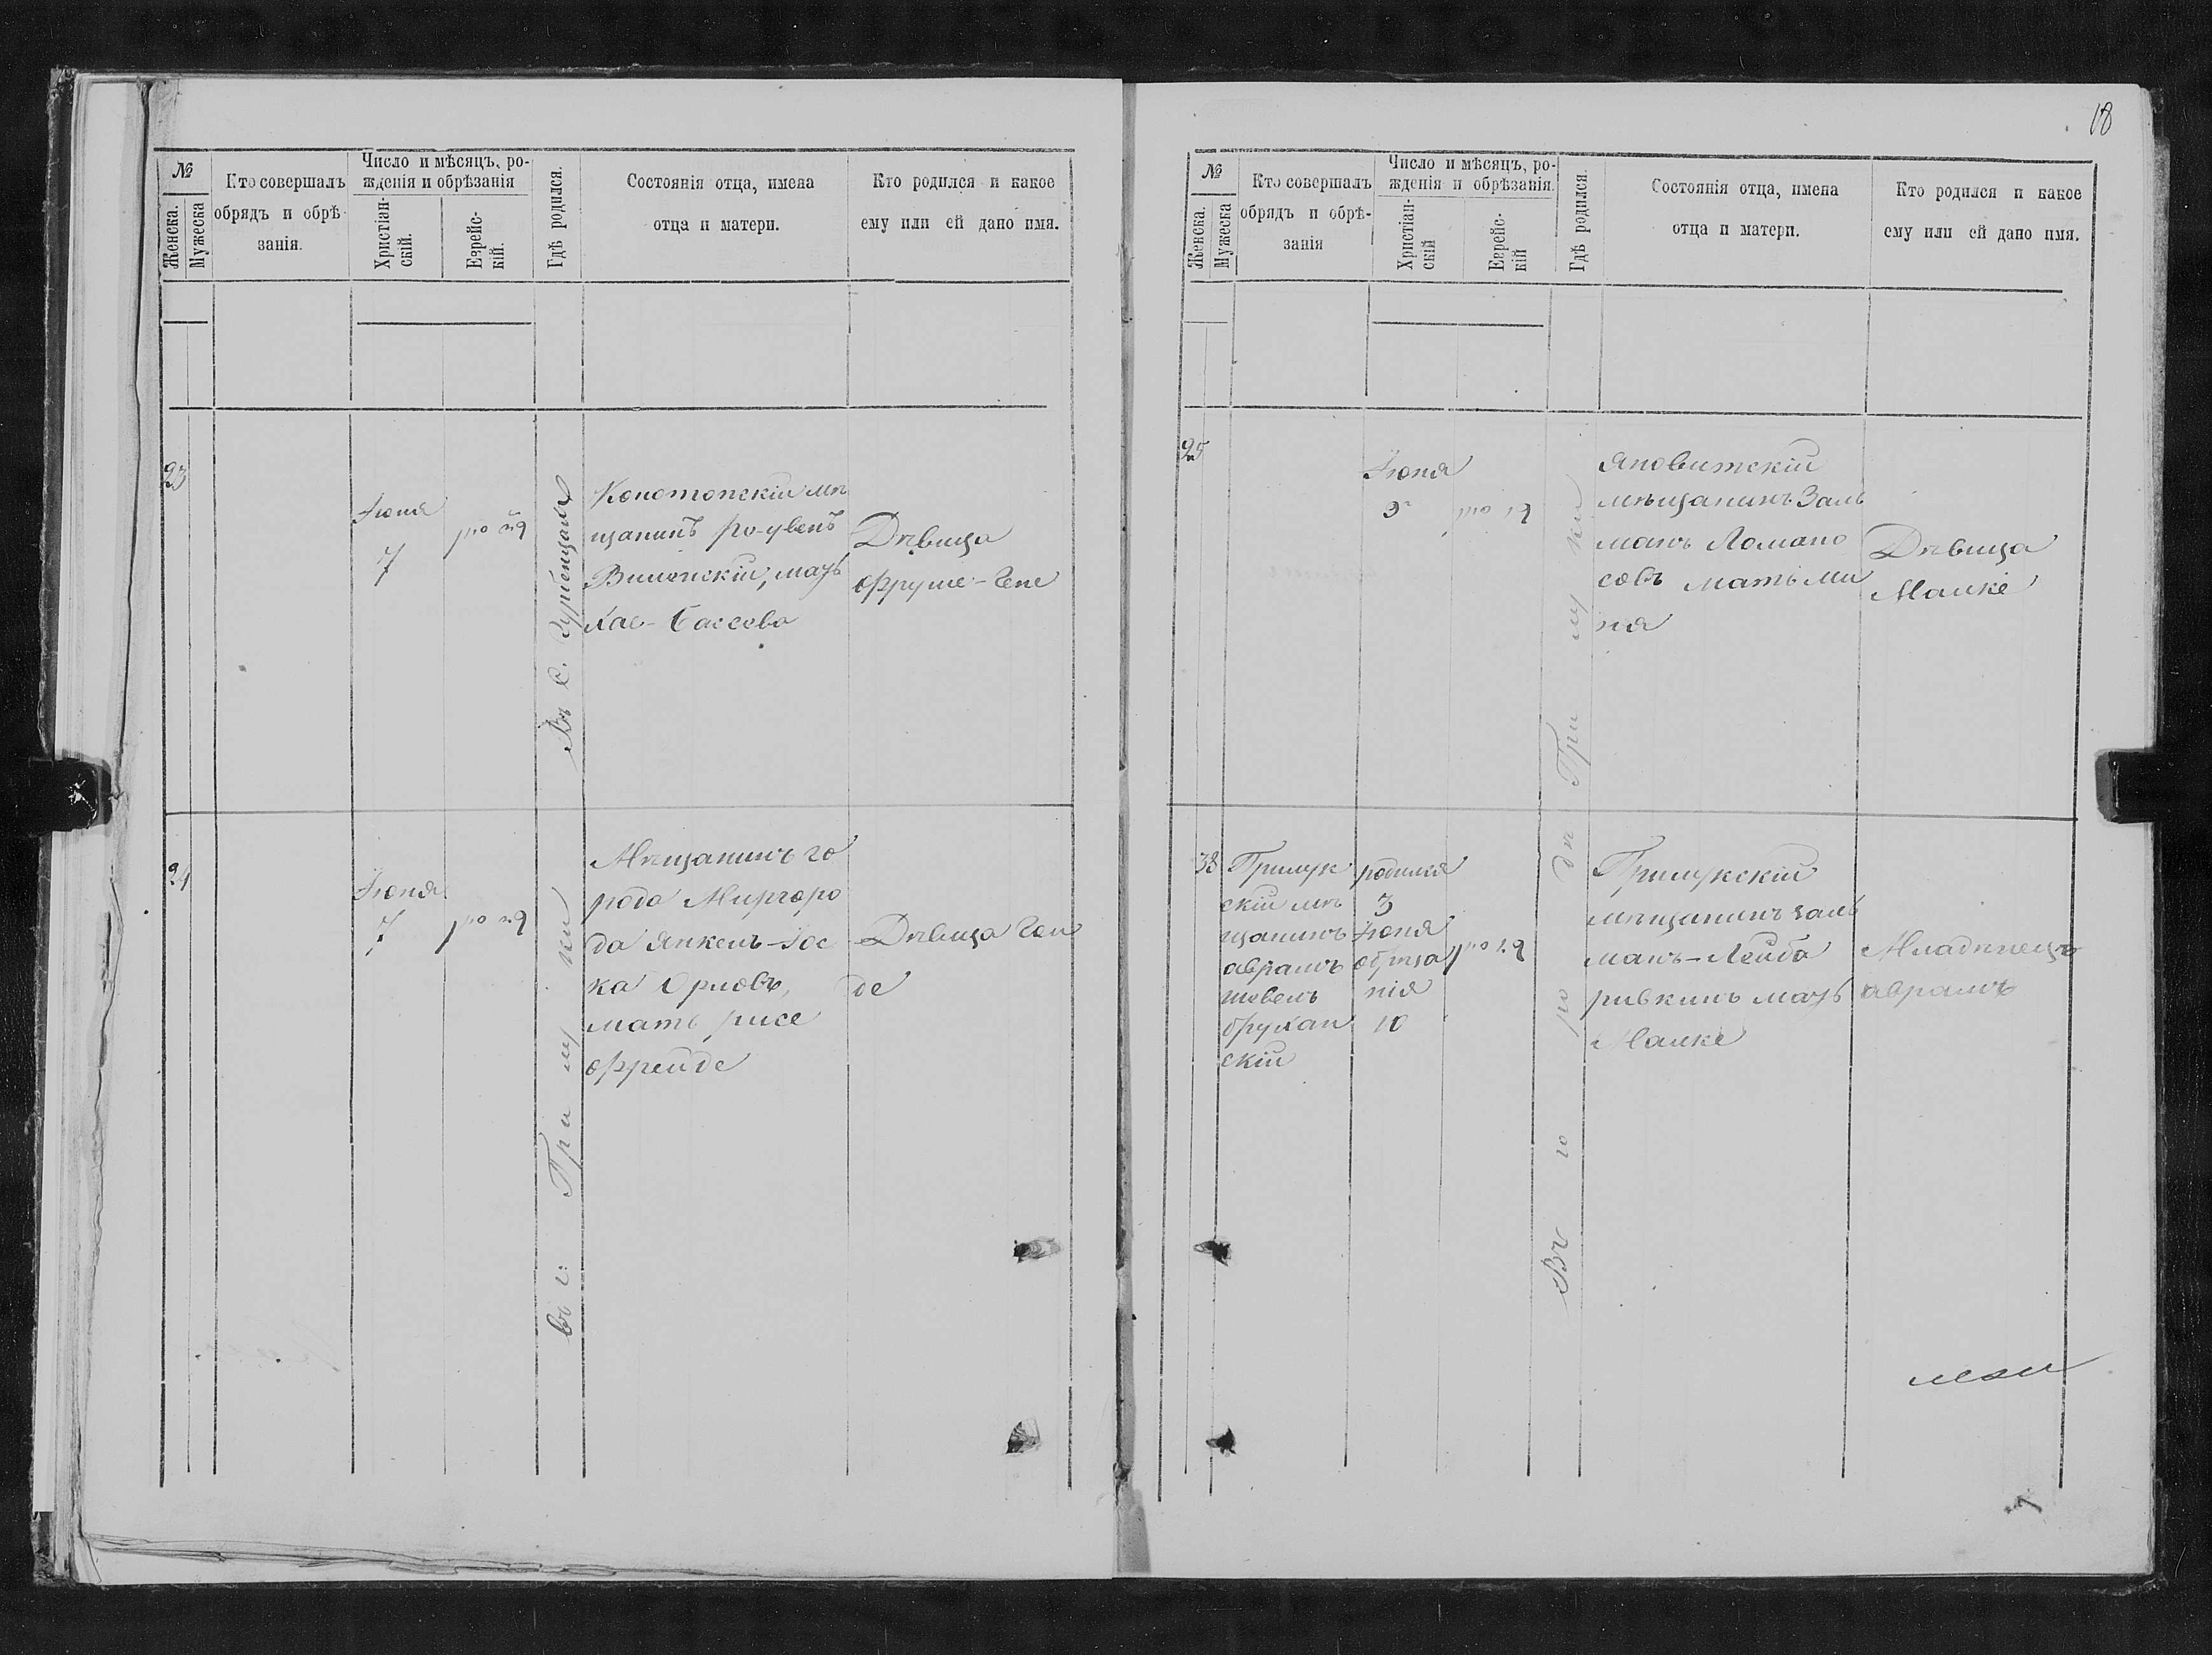 18
№
Женска.
Мужеска
Кто совершалъ
обрядъ и обрѣ-
занія.
Число и мѣсяцъ, ро-
жденія и обрѣзанія
Христіан-
скій.
Еврейс-
кій.
Гдѣ родился.
Состоянія отца, имена
отца и матери.
Кто родился и какое
ему или ей дано имя.
23
Іюня
7
Въ с.
Конотопскій мѣ
щанинъ ро-увенъ
Виленскій, мать
Хае-Бассева
Дѣвица
Фруме-Гене
24
Іюня
7
въ г: Прилуки
Мѣщанинъ го
рода Миргоро
да Янкель-Іос
ка Орловъ,
мать рисе
Фрейде
Дѣвица Ген
де
№
Женска.
Мужеска
Кто совершалъ
обрядъ и обрѣ-
занія
Число и мѣсяцъ, ро-
жденія и обрѣзанія.
Христіан-
скій
Еврейс-
кій
Гдѣ родился.
Состоянія отца, имена
отца и матери.
Кто родился и какое
ему или ей дано имя.
25
Іюня
Въ городѣ Прилуки
Яновитскій
мѣщанинъ Заль
манъ Ломано
совъ мать Ми
ня
Дѣвица
Малке
38
Прилук
скій мѣ
щанинъ
аврамъ
шевель
брухан
скій
родился
3
Іюня
обрѣза
нія
10
Прилукскій
мѣщанинъ заль
манъ-Лейба
ривкинъ мать
Малке
Младенецъ
аврамъ